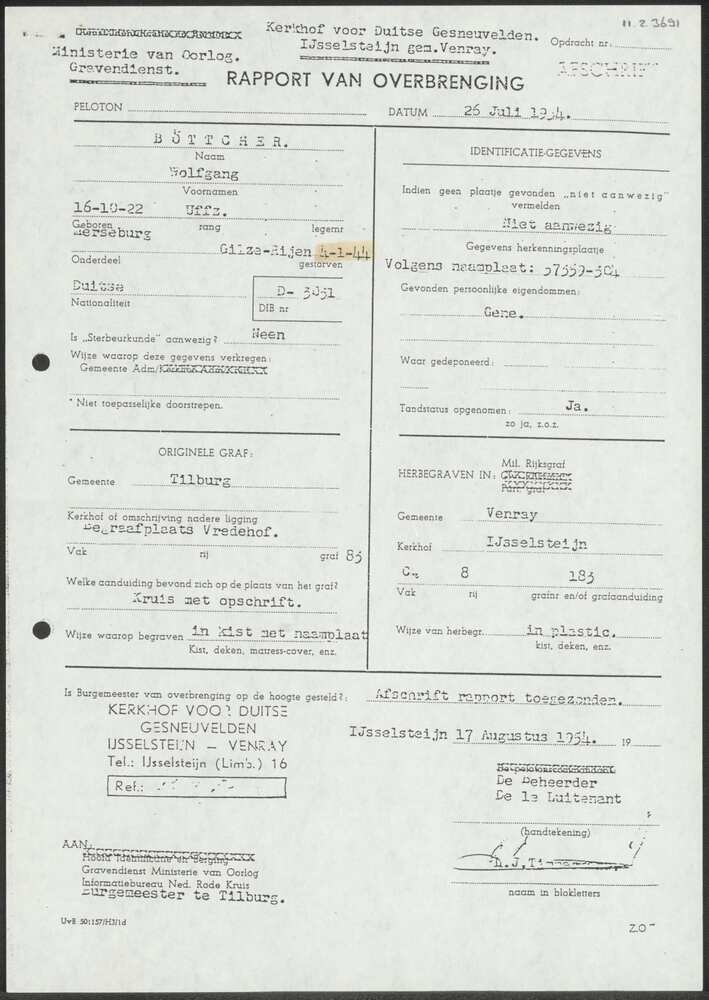 11.2.3691
Kerkhof voor Duitse Gesneuvelden.
IJsselsteijn gem. Venray.
Opdracht nr.
Ministerie van Oorlog.
Gravendienst.
AFSCHRIFT
RAPPORT VAN OVERBRENGING
PELOTON
DATUM 26 Juli 1954.
BÖTTCHER.
Naam
Wolfgang
Voornamen
16-10-22 Uffz.
Geboren rang legernr
Merseburg
Gilze-Rijen 4-1-44
Onderdeel gestorven
Duitse
Nationaliteit
D-
DIB nr
Is „Sterbeurkunde" aanwezig? Neen
Wijze waarop deze gegevens verkregen:
Gemeente Adm/
* Niet toepasselijke doorstrepen.
IDENTIFICATIE-GEGEVENS
Indien geen plaatje gevonden „niet aanwezig"
vermelden
Niet aanwezig
Gegevens herkenningsplaatje
Volgens naamplaat:
Gevonden persoonlijke eigendommen:
Gene.
Waar gedeponeerd:
Tandstatus opgenomen: Ja.
zo ja, z.o.z.
ORIGINELE GRAF:
Gemeente Tilburg
Kerkhof of omschrijving nadere ligging
Begraafplaats Vredehof.
Vak rij graf 83
Welke aanduiding bevond zich op de plaats van het graf?
Kruis met opschrift.
Wijze waarop begraven in kist met naamplaat
Kist, deken, matress-cover, enz.
HERBEGRAVEN IN:
Mil. Rijksgraf
Part. graf
Gemeente Venray
Kerkhof IJsselsteijn
8 183
Vak rij grafnr en/of grafaanduiding
Wijze van herbegr. in plastic.
kist, deken, enz.
Is Burgemeester van overbrenging op de hoogte gesteld?: Afschrift rapport toegezonden.
KERKHOF VOOR DUITSE
GESNEUVELDEN
IJSSELSTEIJN — VENRAY
Tel.: IJsselsteijn (Limb.) 16
Ref.:
IJsselsteijn 17 Augustus 1954. 19
De Beheerder
De 1e Luitenant
(handtekening)
naam in blokletters
AAN:
Hoofd Identificatie en Berging
Gravendienst Ministerie van Oorlog
Informatiebureau Ned. Rode Kruis
Burgemeester te Tilburg.
UvB 501157/H3/1d